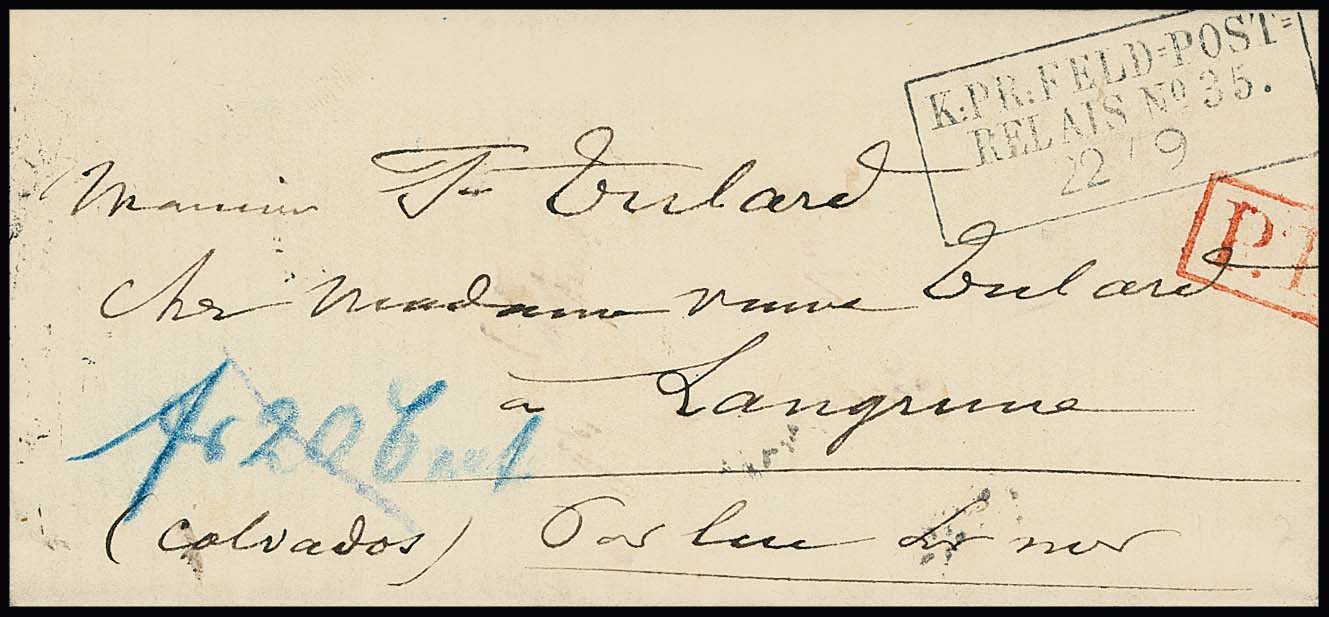 K:PR:FELD=POST=
RELAIS No 35.
22 / 9
P.
Monsieur Tulard
chez Madame veuve Tulard
à Langrune
fr 20 Cent
(Calvados) Par luc sr mer